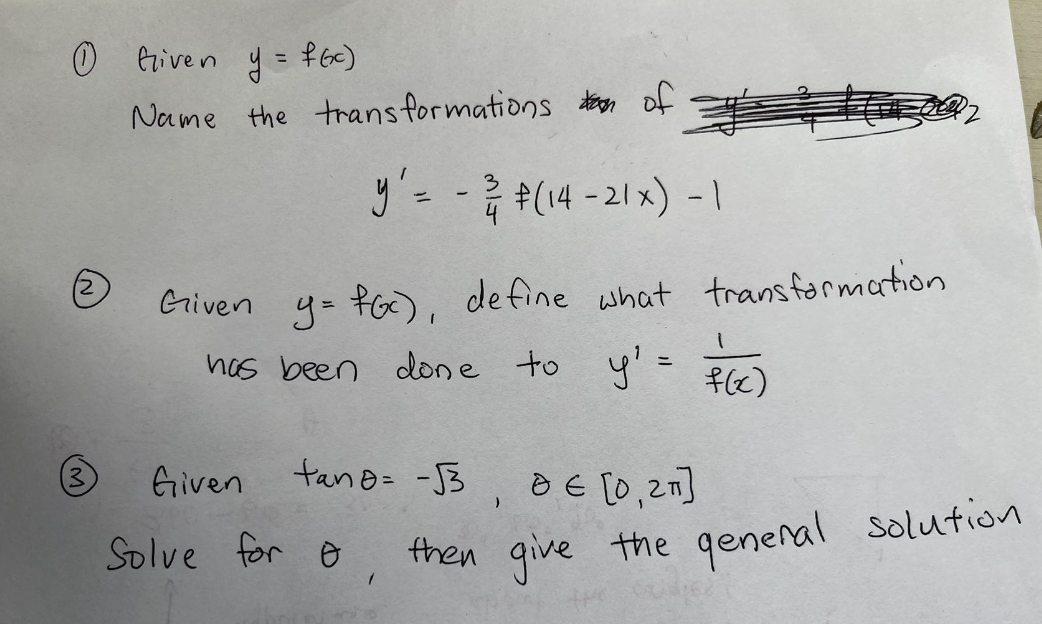 ① Given y = f(x)
Name the transformations of
y' = - 3/4 f(14 - 21x) - 1
② Given y = f(x), define what transformation
has been done to y' = 1/f(x)
③ Given tan θ = -√3 , θ ∈ [0, 2π]
Solve for θ , then give the general solution